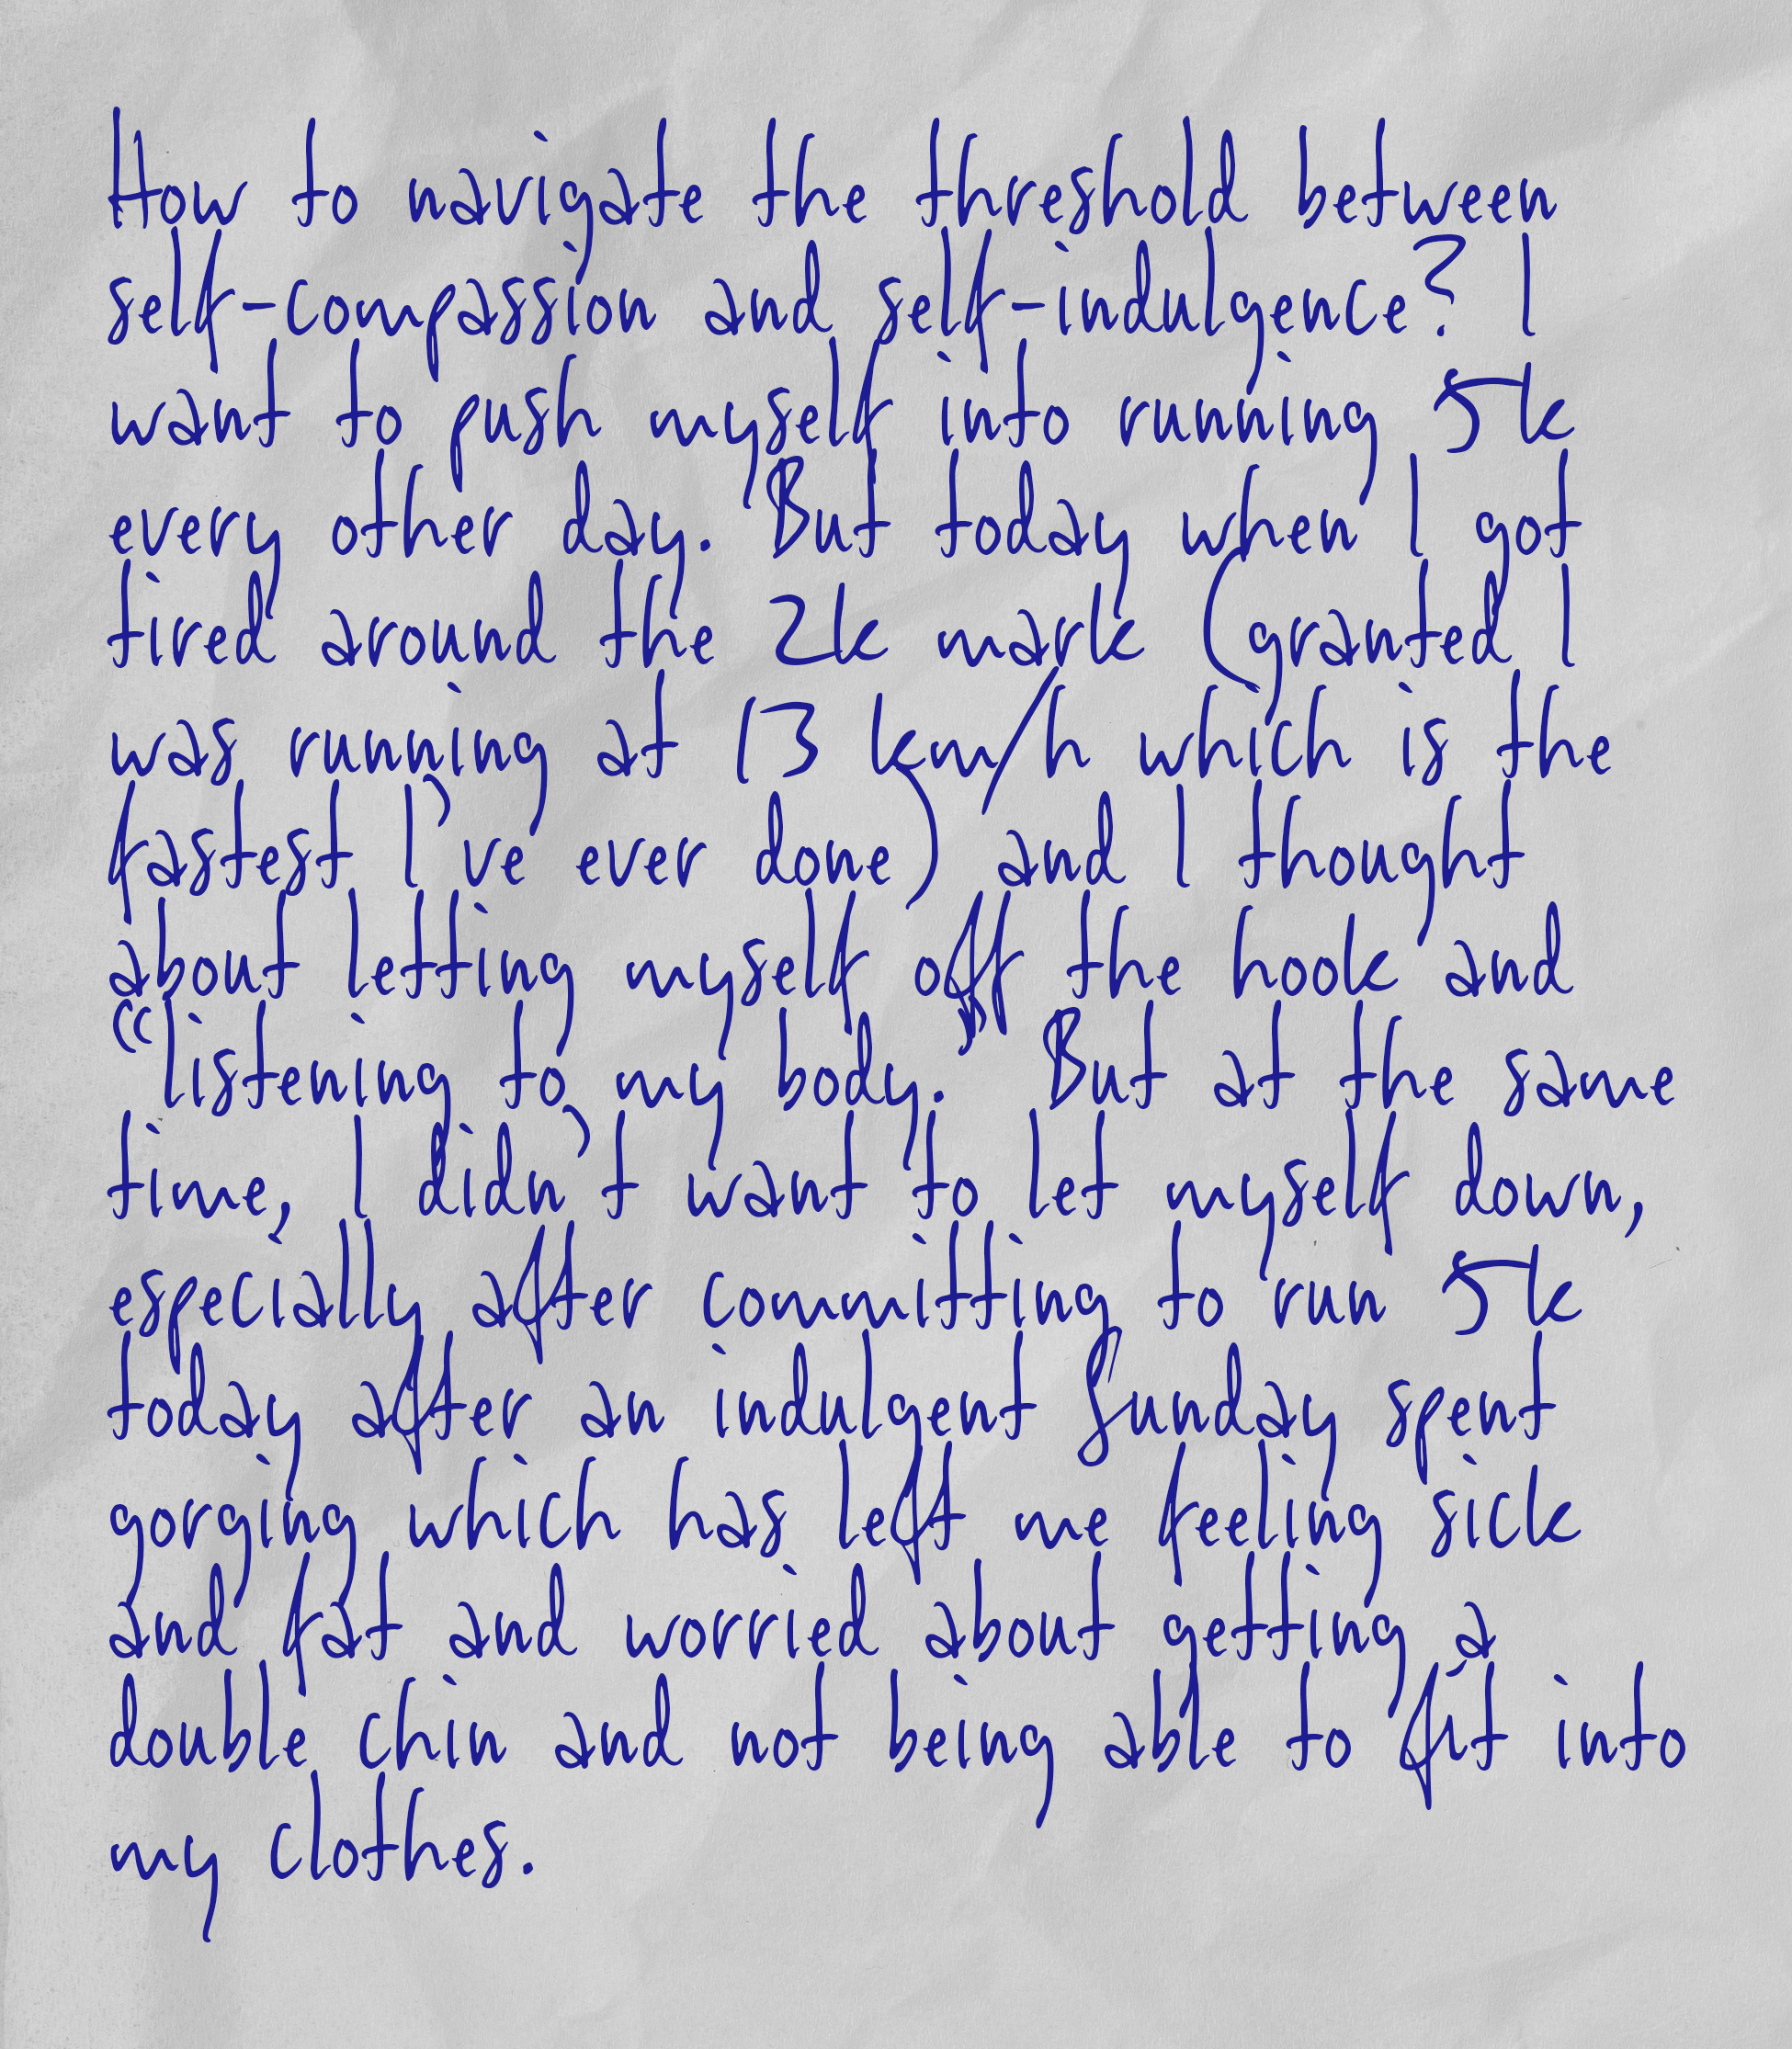 How to navigate the threshold between
self-compassion and self-indulgence? I
want to push myself into running 5k
every other day. But today when I got
tired around the 2k mark (granted I
was running at 13 km/h which is the
fastest I've ever done) and I thought
about letting myself off the hook and
“listening to my body.” But at the same
time, I didn't want to let myself down,
especially after committing to run 5k
today after an indulgent Sunday spent
gorging which has left me feeling sick
and fat and worried about getting a
double chin and not being able to fit into
my clothes.